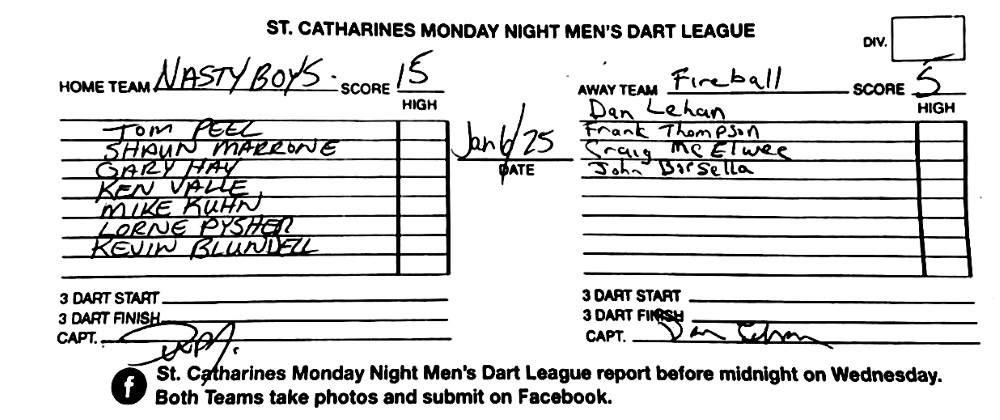 ST. CATHARINES MONDAY NIGHT MEN'S DART LEAGUE
DIV.
HOME TEAM NASTY BOYS. SCORE 15
HIGH
TOM PEEL
SHAUN MARRONE
GARY HAY
KEN VALLE
MIKE KUHN
LORNE PYSHER
KEVIN BLUNDELL
3 DART START
3 DART FINISH
CAPT.
Jan 6/25
DATE
AWAY TEAM Fireball SCORE 5
HIGH
Dan Lehan
Frank Thompson
Craig McElwee
John Borsella
3 DART START
3 DART FINISH
CAPT. Dan Lehan
St. Catharines Monday Night Men's Dart League report before midnight on Wednesday.
Both Teams take photos and submit on Facebook.